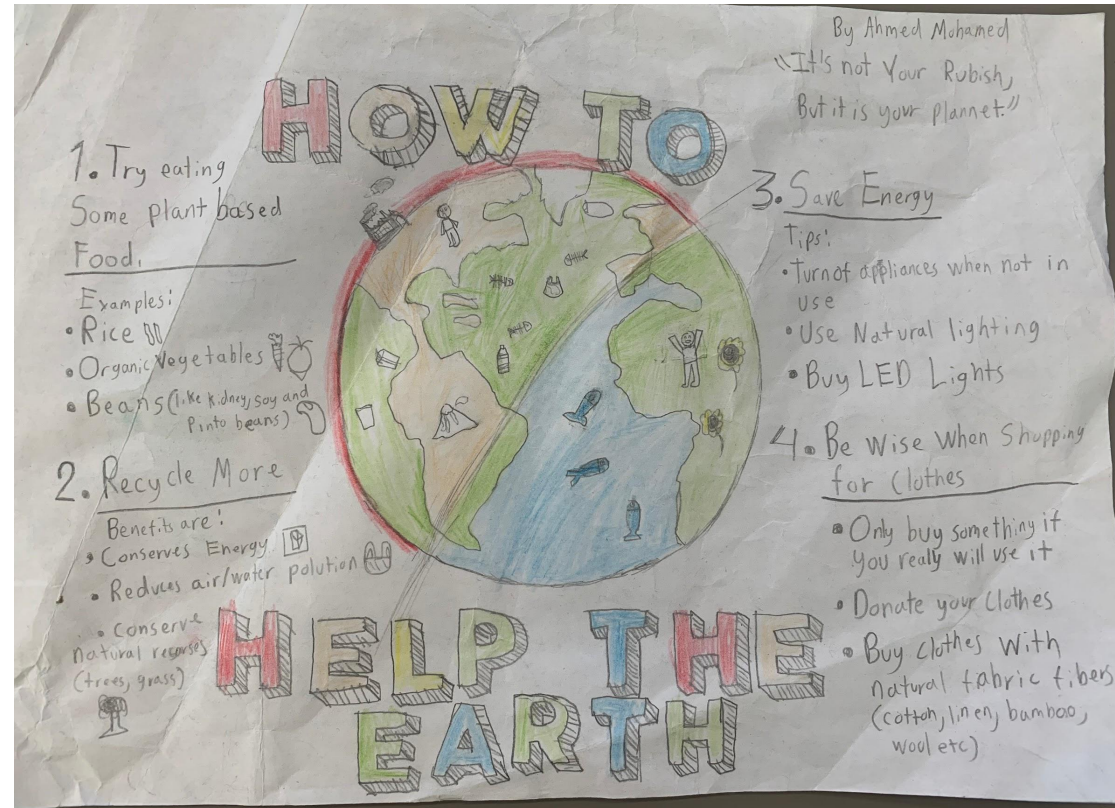 HOW TO
HELP THE
EARTH
By Ahmed Mohamed
"It's not Your Rubish,
But it is your plannet."
1. Try eating
Some plant based
Food.
Examples:
• Rice
• Organic Vegetables
• Beans (like kidney, soy and
Pinto beans)
2. Recycle More
Benefits are:
• Conserves Energy
• Reduces air/water polution
• Conserve
natural recorses
(trees, grass)
3. Save Energy
Tips:
• Turn of appliances when not in
use
• Use Natural lighting
• Buy LED Lights
4. Be Wise When Shopping
for Clothes
• Only buy something if
you really will use it
• Donate your Clothes
• Buy clothes with
natural fabric fibers
(cotton, linen, bamboo,
wool etc)